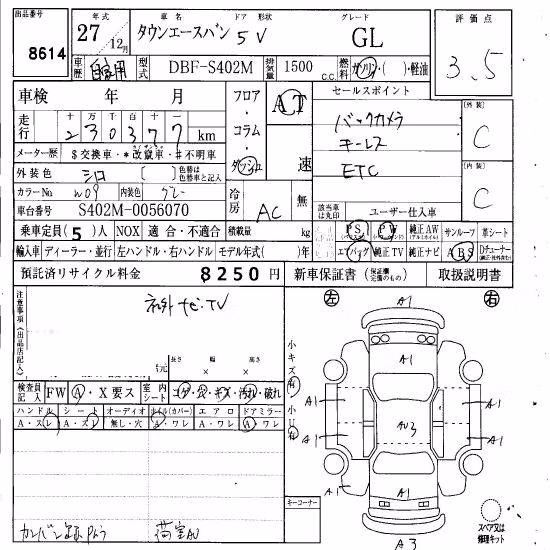 出品番号 年式 車名 ドア 形状 グレード 評価点
8614 27年 12月 タウンエースバン 5V GL 3.5
車歴 自家用 型式 DBF-S402M 排気量 1500 c.c. 燃料 ガソリン・( )・軽油
車検 年 月 フロア・コラム・ダッシュ AT 速 セールスポイント 外装 C
走行 十万 万 千 百 十 一
230377 km バックカメラ
キーレス
メーター歴 $交換車・*改竄車・#不明車 ETC 内装 C
外装色 シロ [ ] 色替は色替車と記入
カラーNo W09 内装色 グレー 冷房 AC 無
車台番号 S402M-0056070 該当装備は丸印 ユーザー仕入車
乗車定員(5)人 NOX 適合・不適合 積載量 kg PS PW 純正AW サンルーフ 革シート
輸入車 ディーラー・並行 左ハンドル・右ハンドル モデル年式( )年 エアバッグ 純正TV 純正ナビ ABS Dチューナー
預託済リサイクル料金 8250円 新車保証書 取扱説明書
注意事項(出品店記入) ネ外ナビ・TV
左 右
号元 長さ × 幅 × 高さ
検査員記入 FW A・X要ス 室内シート コゲ・穴・キズ・汚れ・破れ
小キズ有 小凹有
ハンドル シート オーディオ ホイル(カバー) エアロ ドアミラー
A・スレ A・スレ 無し・穴 A・ワレ A・ワレ A・ワレ
A1
A1
A1 A1
A1 AU3 A1
A1 A1
A1
A3
キーコーナー
スペア又は修理キット
荷室AU